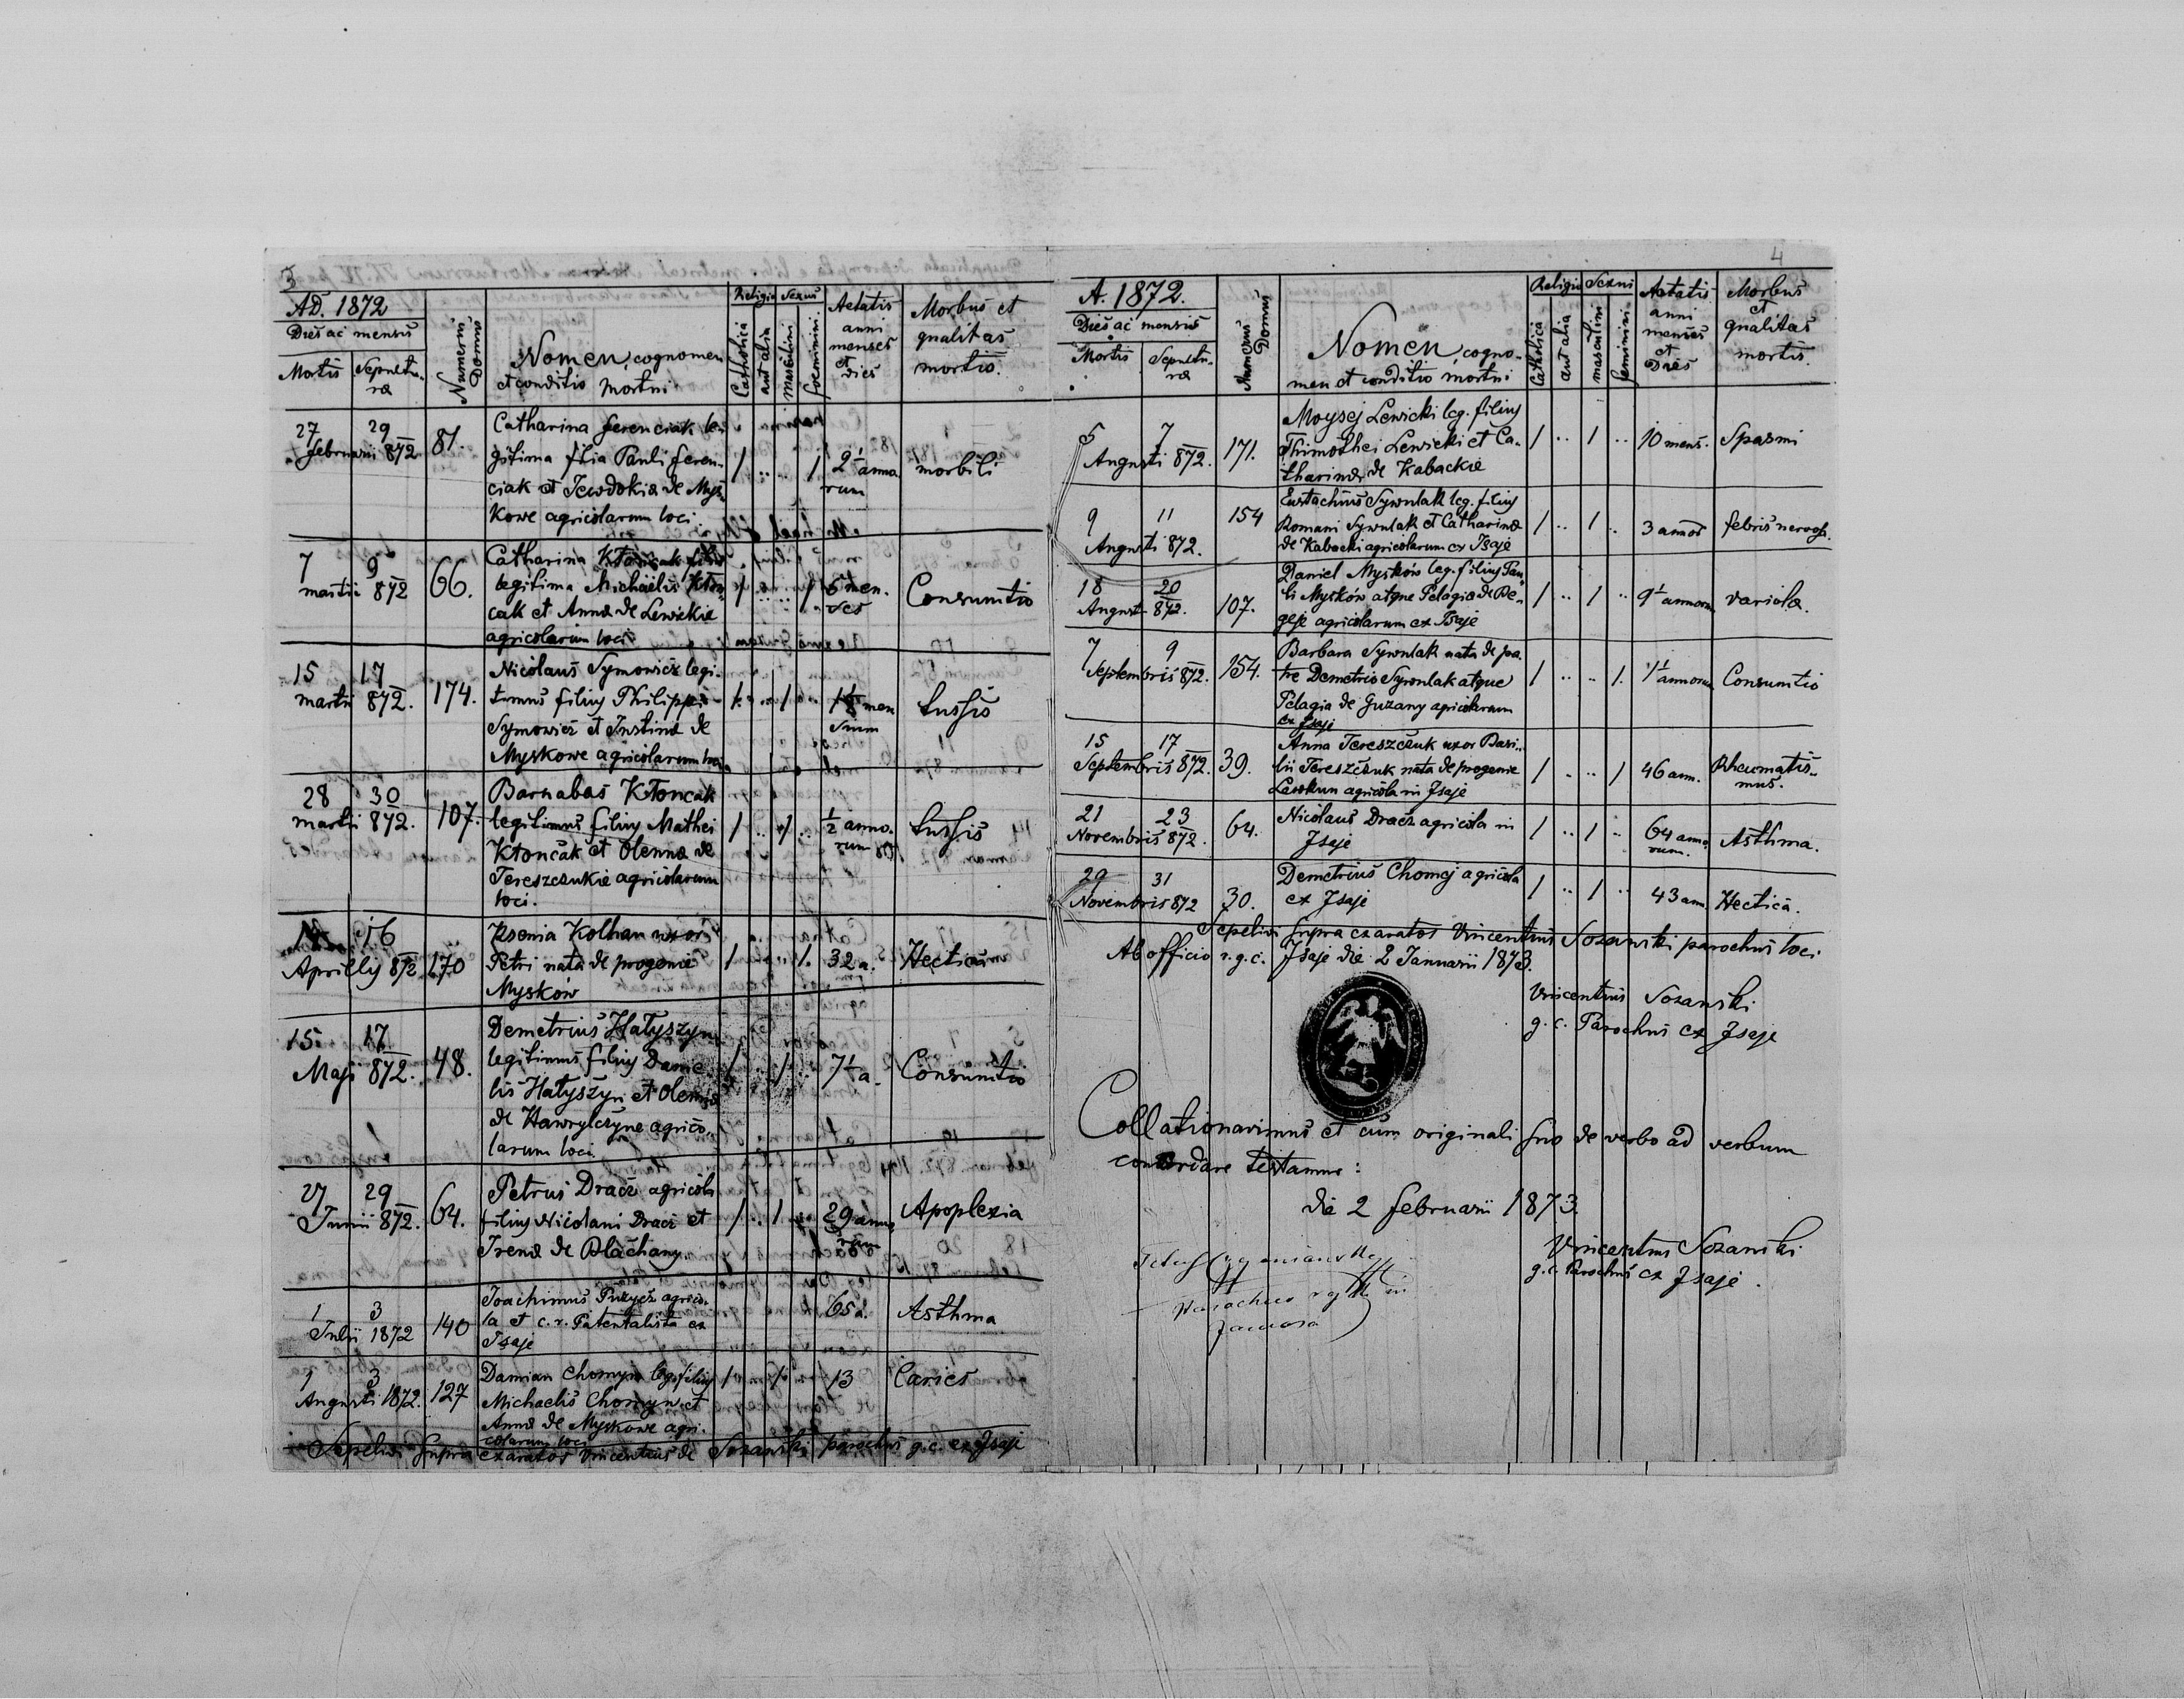 3
AD. 1872
Dies ac mensis
Mortis Sepultu-
ræ
Numerus Domus
Nomen, cognomen
et conditio mortui
Religio
Catholica
aut alia
Sexus
Masculini
foeminini
Aetatis
anni
menses
et
dies
Morbus et
qualitas
mortis.
27 29
februarii 872
81.
Catharina ferenciak le-
gitima filia Pauli feren-
ciak et Jewdokiæ de Mys-
kowe agricolarum loci.
1 .. .. 1
2½ anno-
rum
morbili
7 9
martii 872
66.
Catharina Kłonćak filia
legitima Michaëlis Kłon-
cak et Annæ de Lewickie
agricolarum loci
1 .. .. 1
men-
ses
Consumtio
15 17
martii 872.
174.
Nicolaus Symowicz legi-
timus filius Philippi
Symowicz et Justinæ de
Myskowe agricolarum loci
1 .. 1 ..
men
sium
tussis
28 30
martii 872.
107.
Barnabas Kłoncak
legitimus filius Mathei
Kłonćak et Olennæ de
Tereszczukie agricolarum
loci.
1 .. 1 ..
½ anno-
rum
tussis
16
Aprillis 872
170
Ksenia Kolhan uxor
Petri nata de progenie
Myskow
1 .. .. 1.
32 a.
Hectica
15 17
Maji 872.
48.
Demetrius Hałyszyn
legitimus filius Danie-
lis Hałyszyn et Olennæ
de Hawrylczyne agrico-
larum loci.
1 .. 1 ..
7½ a.
Consumtio
27 29
Junii 872.
64.
Petrus Dracz agricola
filius Nicolani Dracz et
Irenæ de Blachany
1 .. 1 ..
29 anno-
rum
Apoplexia
1 3
Julii 1872
140
Joachimus Puzycz agrico-
la et c. r. Patentalista ex
Isaje
65 a.
Asthma
1 3
Augusti 1872.
127
Damian Chomyn leg. filius
Michaelis Chomyn et
Annæ de Myskowe agri-
colarum loci
1 .. 1 ..
13
Caries
Sepelivi supra exaratos Vincentius de Sozanski parochus g.c. ex Isaje
4
A. 1872.
Dies ac mensis
Mortis Sepultu-
ræ
Numerus Domus
Nomen, cogno-
men et conditio mortui
Religio
Catholica
aut alia
Sexus
masculini
feminini
Aetatis
anni
menses
et
Dies
Morbus
et
qualitas
mortis.
5 7
Augusti 872.
171.
Moysej Lewicki leg. filius
Thimothei Lewicki et Ca-
tharinæ de Kabackie
1 .. 1 ..
10 mens.
Spasmi
9 11
Augusti 872.
154
Eustachius Sywulak leg. filius
Romani Sywulak et Catharinæ
de Kabacki agricolarum ex Isaje
1 .. 1 ..
3 annos
febris nervosa.
18 20
August 872.
107.
Daniel Myskow leg. filius Pau-
li Myskow atque Pelagiæ de Re-
geje agricolarum ex Isaje
1 .. 1 ..
9½ annorum
variola.
7 9
Septembris 872.
154.
Barbara Sywulak nata de pa-
tre Demetrio Sywulak atque
Pelagia de Guzany agricolarum
ex Isaje
1 .. .. 1.
1½ annorum
Consumtio
15 17
Septembris 872.
39.
Anna Tereszczuk uxor Basi-
lii Tereszczuk nata de progenie
Lawkun agricola in Isaje
1 .. .. 1
46 ann.
Rheumatis-
mus.
21 23
Novembris 872.
64.
Nicolaus Dracz agricola in
Isaje
1 .. 1 ..
64 anno-
rum.
Asthma.
29 31
Novembris 872
30.
Demetrius Chomej agricola
ex Isaje
1 .. 1 ..
43 ann.
Hectica.
Sepelivi supra exaratos Vincentius Sozanski parochus loci
Ab officio r.g.c. Isaje die 2 Januarii 1873.
Vincentius Sozanski
g. c. Parochus ex Isaje
Collationavimus et cum originali suo de verbo ad verbum
concordare testamur:
die 2 februarii 1873.
Vincentius Sozanski
g.c. Parochus ex Isaje.